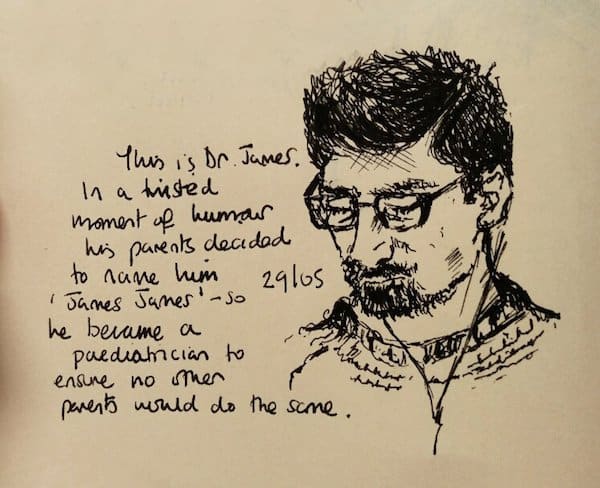 This is Dr. James.
In a twisted
moment of humour
his parents decided
to name him
'James James' - so
he became a
paediatrician to
ensure no other
parents would do the same.
29/05